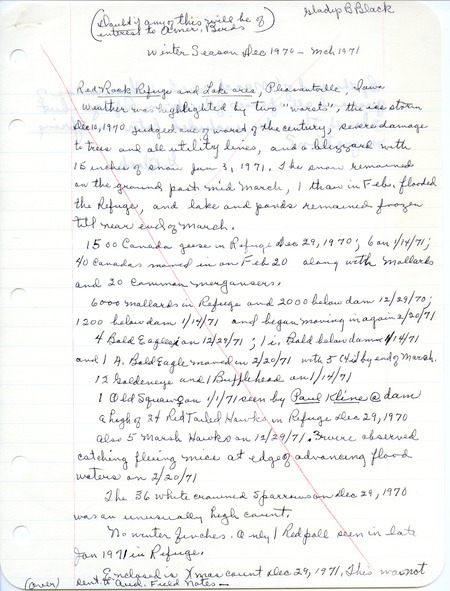 (Doubt if any of this will be of
interest to Amer. Birds)
Gladys B Black
Winter Season Dec 1970 - Mch 1971
Red Rock Refuge and Lake area, Pleasantville, Iowa
Weather was highlighted by two "worsts", the ice storm
Dec 10, 1970 judged one of worst of the century, severe damage
to trees and all utility lines, and a blizzard with
15 inches of snow Jan 3, 1971. The snow remained
on the ground past mid March, 1 thaw in Feb. flooded
the Refuge, and lake and ponds remained frozen
till near end of March.
1500 Canada geese in Refuge Dec 29, 1970; 6 on 1/14/71;
40 Canadas moved in on Feb 20 along with mallards
and 20 Common mergansers.
6000 mallards in Refuge and 2000 below dam 12/29/70;
1200 below dam 1/14/71 and began moving in again 2/20/71
4 Bald Eagles on 12/29/71; 1 i. Bald below dam 1/14/71
and 1 A. Bald Eagle moved on 2/20/71 with 5 (4i) by end of March.
12 Goldeneye and 1 Bufflehead on 1/14/71
1 Old Squaw on 1/1/71 seen by Paul Kline @ dam
a high of 24 Red Tailed Hawks in Refuge Dec 29, 1970
Also 5 Marsh Hawks on 12/29/71. 3 were observed
catching fleeing mice at edge of advancing flood
waters on 2/20/71
The 36 White crowned Sparrows on Dec 29, 1970
was an unusually high count.
No winter finches. Only 1 Redpoll seen in late
Jan 1971 in Refuge.
Enclosed is Xmas count Dec 29, 1971. This was not
(over) sent to Aud. Field Notes -